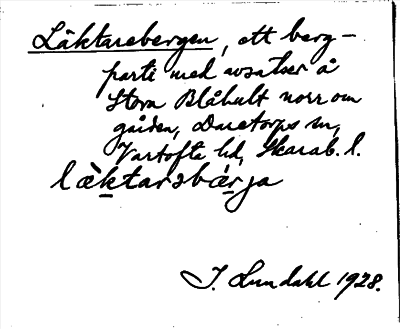 Läktarebergen, ett berg-
parti med avsatser å
Stora Blåhult norr om
gården, Daretorps sn,
Vartofta hd, Skarab. l.
læ̀ktarsbǽrja
I. Lundahl 1928.